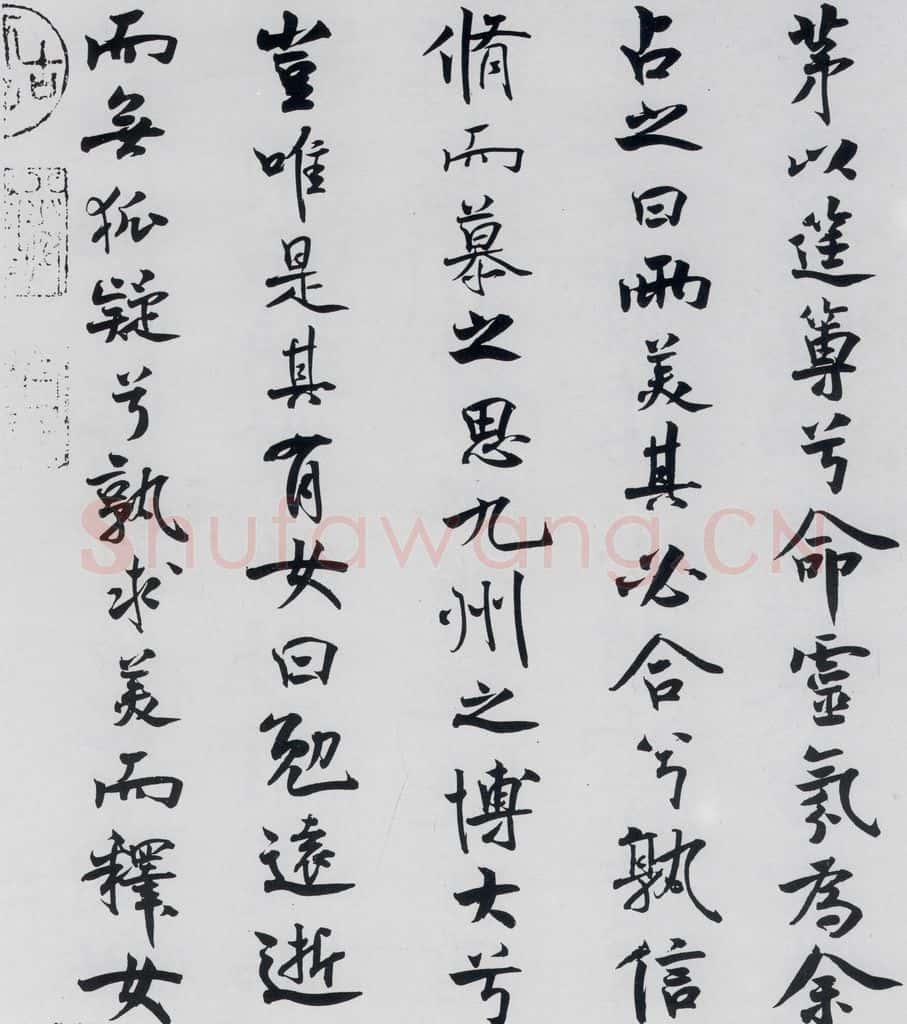 茅以筳篿兮命靈氛為余
占之曰兩美其必合兮孰信
脩而慕之思九州之博大兮
豈唯是其有女曰勉遠逝
而無狐疑兮孰求美而釋女
Shufawang.CN